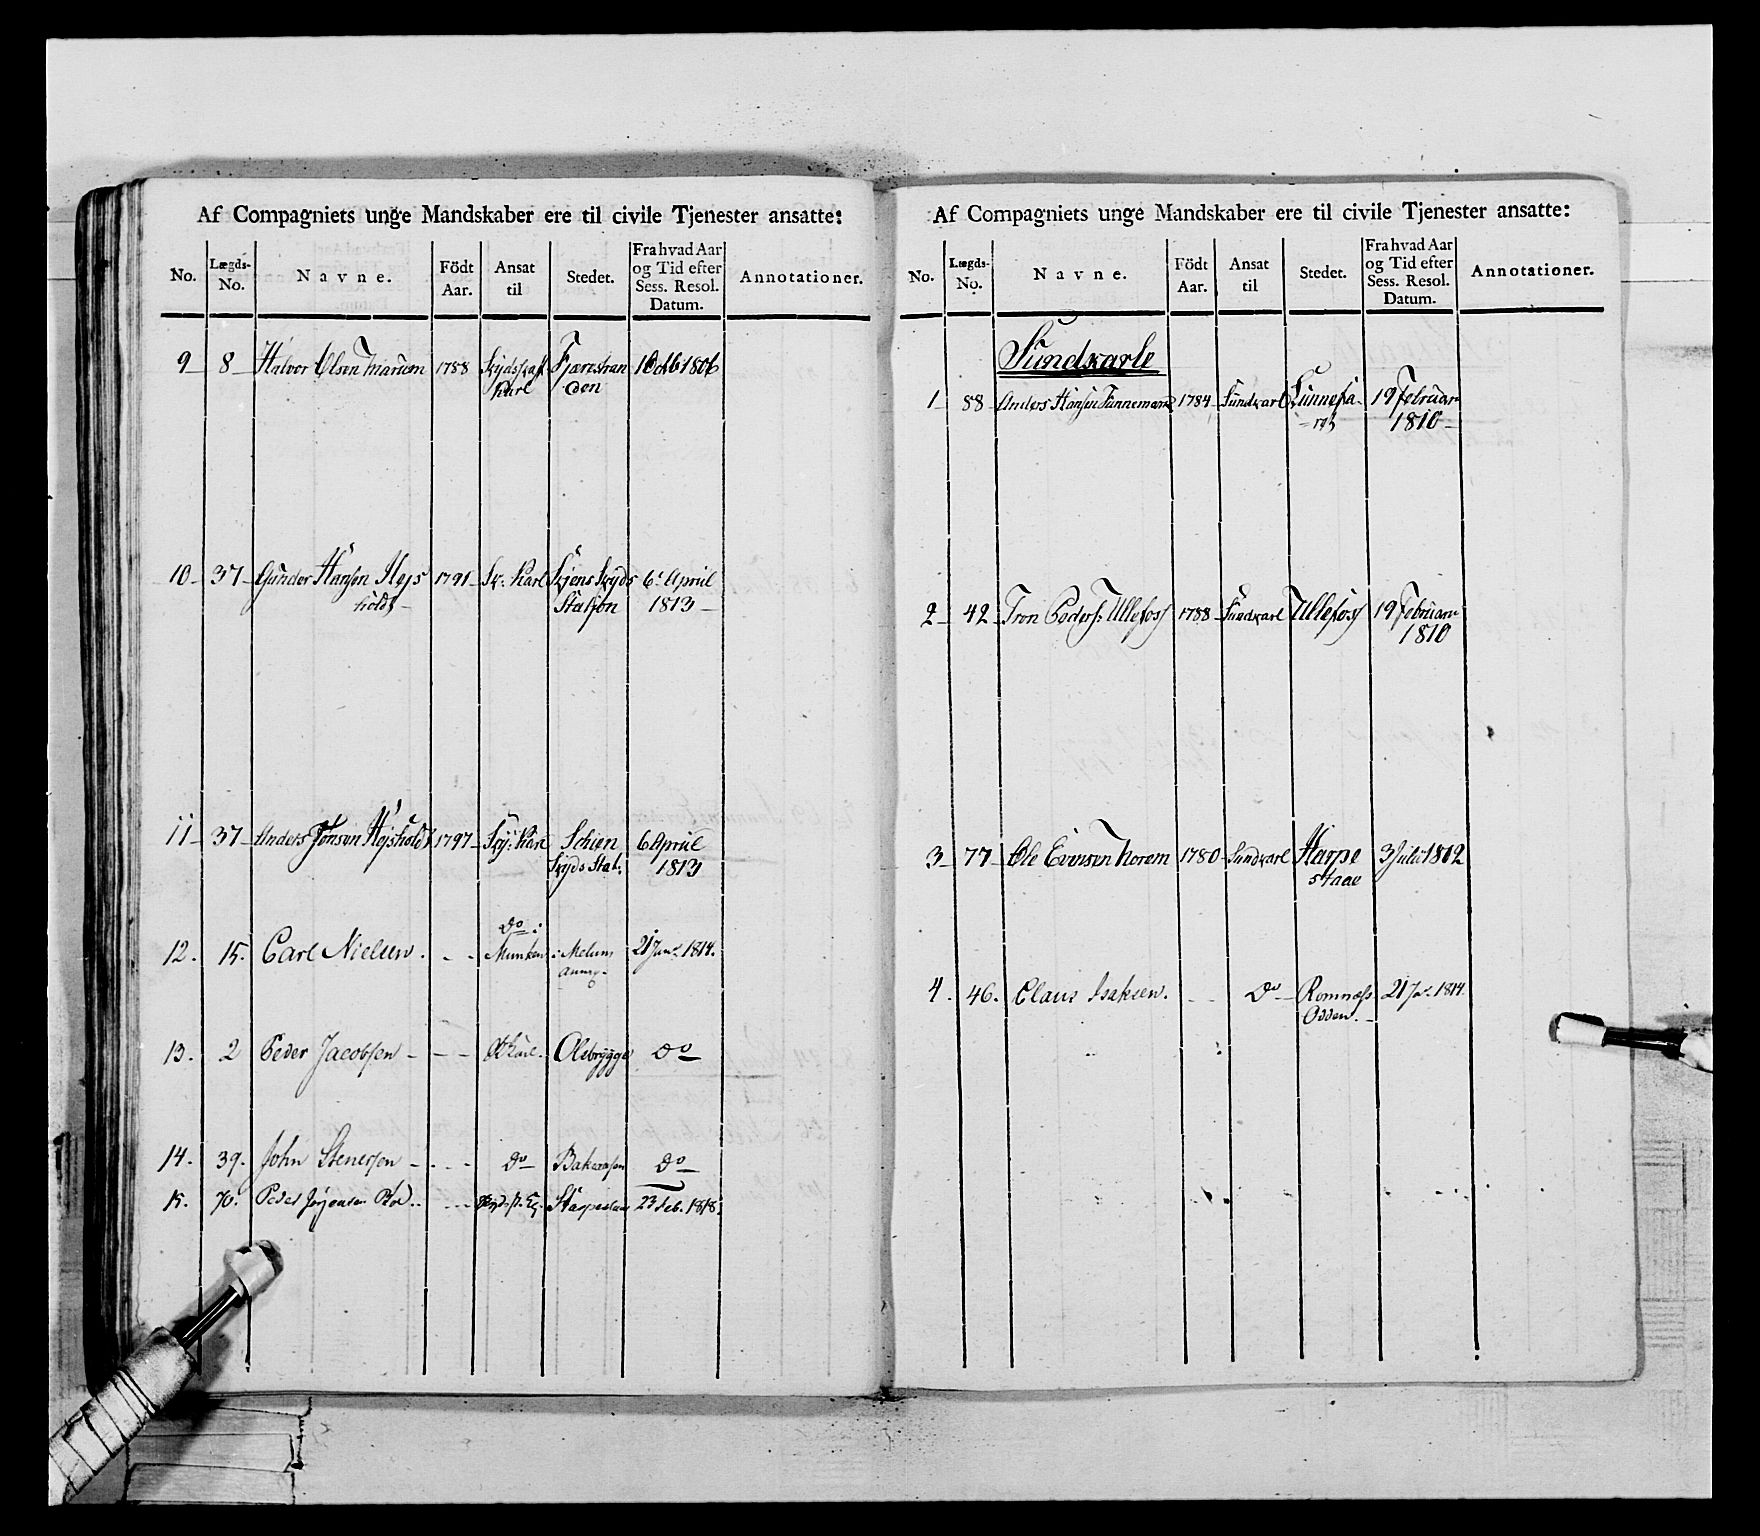 Af Compagniets unge Mandskaber ere til civile Tjenester ansatte:
No. Lægds-No. Navne. Födt Aar. Ansat til Stedet. Fra hvad Aar og Tid efter Sess. Resol. Datum. Annotationer.
9 8 Halvor Olsen Tviarum 1788 Skydsskaf Fjærestran 1806
Karl den
10 37 Gunder Hansen Hojs 1791 Sk: Karl Skjens Skyds 6t April
holdt Station 1813
11 37 Anders Jonsen Hojsholdt 1797 Sky: Karl Schien 6 April
Skyds Stat: 1813
Do:
12. 15. Carl Nielsen. - - Munken 21 Jan. 1814.
13. 2 Peder Jacobsen - - - Olebrygge Do
14. 39. John Stenersen - - - Do Bakaasen Do
15. 70. Peder Jörgensen - - - 23 Feb. 1818.
Af Compagniets unge Mandskaber ere til civile Tjenester ansatte:
No. Lægds-No. Navne. Födt Aar. Ansat til Stedet. Fra hvad Aar og Tid efter Sess. Resol. Datum. Annotationer.
Sundkarle
1 88 Anders Hansen 1784 Sundkarl 19 Februar
1810
2 42 Tron Peders: Ullefoss 1788 Sundkarl Ullefoss 19 Februar
1810
3 77 Ole Evensen Norem 1780 Sundkarl Harpe 3 Juli 1812
staae
4. 46. Claus Isaksen. - - Do Romnæss 21 Ja: 1814.
Odden.